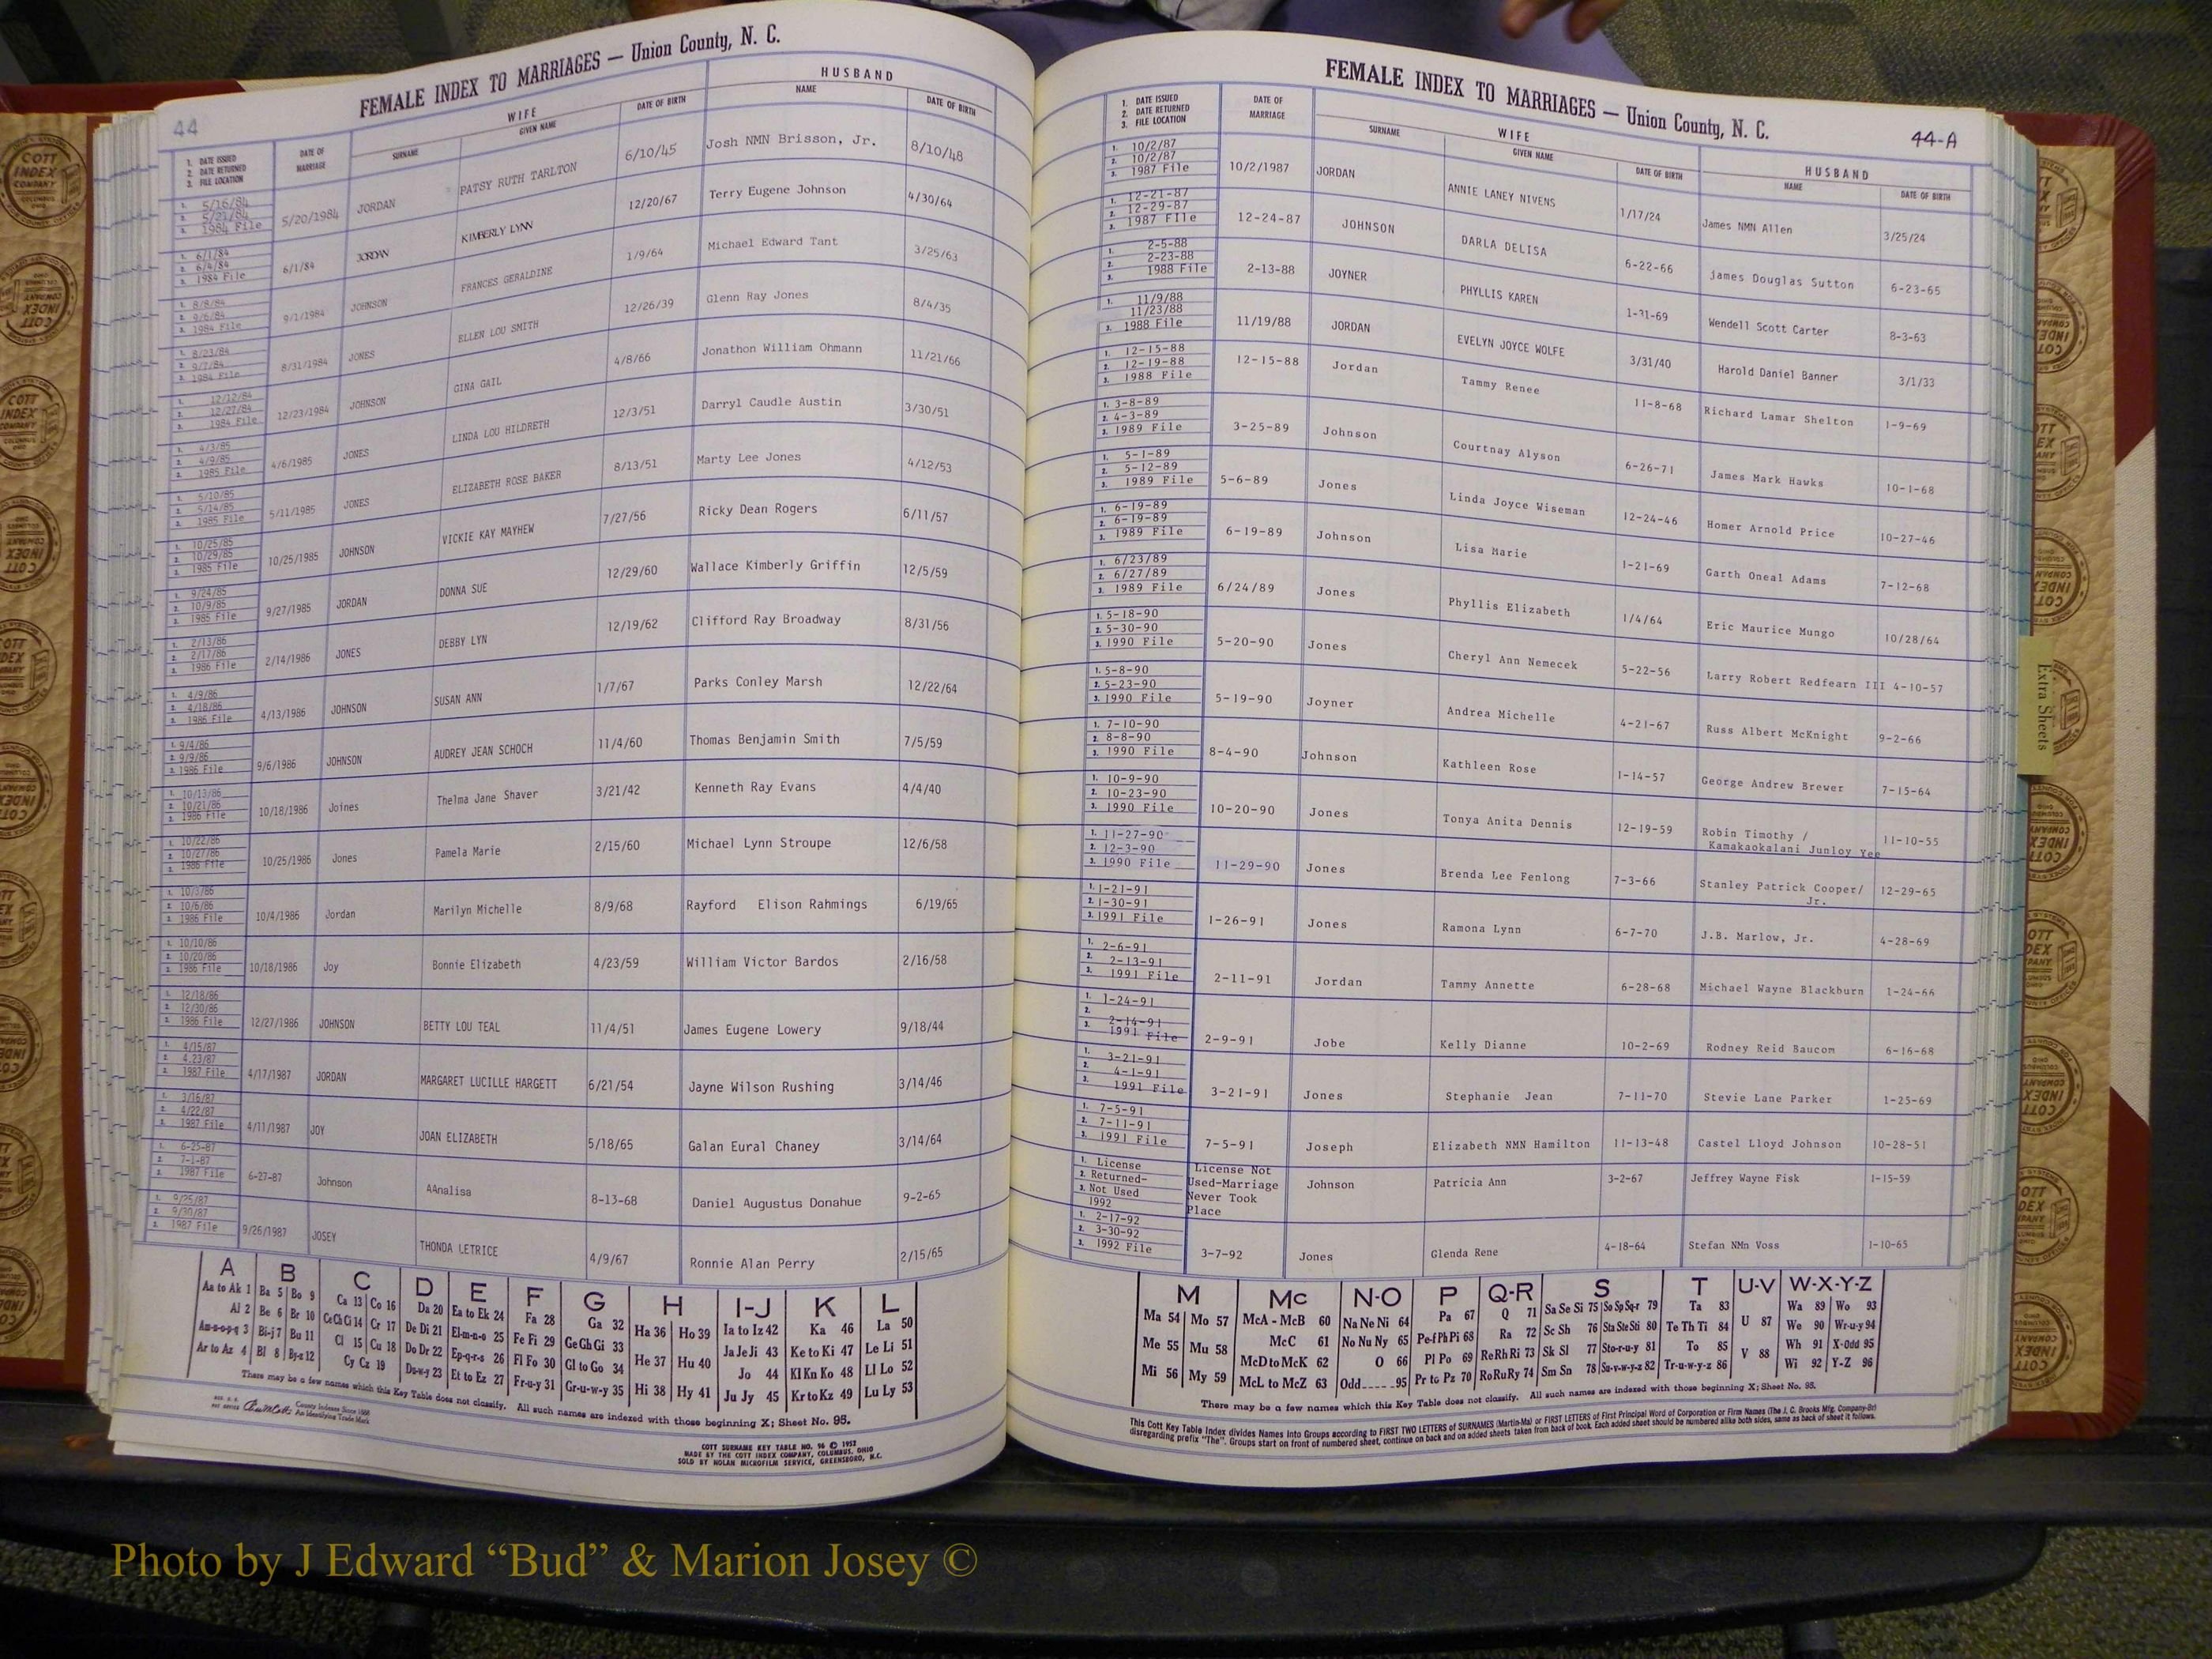 FEMALE INDEX TO MARRIAGES — Union County, N. C.
44
1. DATE ISSUED 2. DATE RETURNED 3. FILE LOCATION
DATE OF MARRIAGE
WIFE
SURNAME GIVEN NAME DATE OF BIRTH
HUSBAND
NAME DATE OF BIRTH
1. 5/16/84 2. 5/21/84 3. 1984 File 5/20/1984 JORDAN PATSY RUTH TARLTON 6/10/45 Josh NMN Brisson, Jr. 8/10/48
1. 6/1/84 2. 6/4/84 3. 1984 File 6/1/84 JORDAN KIMBERLY LYNN 12/20/67 Terry Eugene Johnson 4/30/64
1. 8/8/84 2. 9/6/84 3. 1984 File 9/1/1984 JOHNSON FRANCES GERALDINE 1/9/64 Michael Edward Tant 3/25/63
1. 8/23/84 2. 9/7/84 3. 1984 File 8/31/1984 JONES ELLEN LOU SMITH 12/26/39 Glenn Ray Jones 8/4/35
1. 12/12/84 2. 12/27/84 3. 1984 File 12/23/1984 JOHNSON GINA GAIL 4/8/66 Jonathon William Ohmann 11/21/66
1. 4/3/85 2. 4/9/85 3. 1985 File 4/6/1985 JONES LINDA LOU HILDRETH 12/3/51 Darryl Caudle Austin 3/30/51
1. 5/10/85 2. 5/14/85 3. 1985 File 5/11/1985 JONES ELIZABETH ROSE BAKER 8/13/51 Marty Lee Jones 4/12/53
1. 10/25/85 2. 10/29/85 3. 1985 File 10/25/1985 JOHNSON VICKIE KAY MAYHEW 7/27/56 Ricky Dean Rogers 6/11/57
1. 9/24/85 2. 10/9/85 3. 1985 File 9/27/1985 JORDAN DONNA SUE 12/29/60 Wallace Kimberly Griffin 12/5/59
1. 2/13/86 2. 2/17/86 3. 1986 File 2/14/1986 JONES DEBBY LYN 12/19/62 Clifford Ray Broadway 8/31/56
1. 4/9/86 2. 4/18/86 3. 1986 File 4/13/1986 JOHNSON SUSAN ANN 1/7/67 Parks Conley Marsh 12/22/64
1. 9/4/86 2. 9/9/86 3. 1986 File 9/6/1986 JOHNSON AUDREY JEAN SCHOCH 11/4/60 Thomas Benjamin Smith 7/5/59
1. 10/13/86 2. 10/21/86 3. 1986 File 10/18/1986 Joines Thelma Jane Shaver 3/21/42 Kenneth Ray Evans 4/4/40
1. 10/22/86 2. 10/27/86 3. 1986 File 10/25/1986 Jones Pamela Marie 2/15/60 Michael Lynn Stroupe 12/6/58
1. 10/3/86 2. 10/6/86 3. 1986 File 10/4/1986 Jordan Marilyn Michelle 8/9/68 Rayford Elison Rahmings 6/19/65
1. 10/10/86 2. 10/20/86 3. 1986 File 10/18/1986 Joy Bonnie Elizabeth 4/23/59 William Victor Bardos 2/16/58
1. 12/18/86 2. 12/30/86 3. 1986 File 12/27/1986 JOHNSON BETTY LOU TEAL 11/4/51 James Eugene Lowery 9/18/44
1. 4/15/87 2. 4.23/87 3. 1987 File 4/17/1987 JORDAN MARGARET LUCILLE HARGETT 6/21/54 Jayne Wilson Rushing 3/14/46
1. 3/16/87 2. 4/22/87 3. 1987 File 4/11/1987 JOY JOAN ELIZABETH 5/18/65 Galan Eural Chaney 3/14/64
1. 6-25-87 2. 7-1-87 3. 1987 File 6-27-87 Johnson AAnalisa 8-13-68 Daniel Augustus Donahue 9-2-65
1. 9/25/87 2. 9/30/87 3. 1987 File 9/26/1987 JOSEY THONDA LETRICE 4/9/67 Ronnie Alan Perry 2/15/65
A B C D E F G H I-J K L
Aa to Ak 1 Ba 5 Bo 9 Ca 13 Co 16 Da 20 Ea to Ek 24 Fa 28 Ga 32 Ha 36 Ho 39 Ia to Iz 42 Ka 46 La 50
Al 2 Be 6 Br 10 Ce Ch Ci 14 Cr 17 De Di 21 El-m-n-o 25 Fe Fi 29 Ge Gh Gi 33 Ja Je Ji 43 Ke to Ki 47 Le Li 51
Am-n-o-p-q 3 Bi-j 7 Bu 11 Cl 15 Cu 18 Do Dr 22 Ep-q-r-s 26 Fl Fo 30 Gl to Go 34 He 37 Hu 40 Jo 44 Kl Kn Ko 48 Ll Lo 52
Ar to Az 4 Bl 8 By-z 12 Cy Cz 19 Du-w-y 23 Et to Ez 27 Fr-u-y 31 Gr-u-w-y 35 Hi 38 Hy 41 Ju Jy 45 Kr to Kz 49 Lu Ly 53
There may be a few names which this Key Table does not classify. All such names are indexed with those beginning X; Sheet No. 95.
County Indexes Since 1888
An Identifying Trade Mark
COTT SURNAME KEY TABLE NO. 96 © 1952
MADE BY THE COTT INDEX COMPANY, COLUMBUS, OHIO
SOLD BY NOLAN MICROFILM SERVICE, GREENSBORO, N.C.
FEMALE INDEX TO MARRIAGES — Union County, N. C.
44-A
1. DATE ISSUED 2. DATE RETURNED 3. FILE LOCATION
DATE OF MARRIAGE
WIFE
SURNAME GIVEN NAME DATE OF BIRTH
HUSBAND
NAME DATE OF BIRTH
1. 10/2/87 2. 10/2/87 3. 1987 File 10/2/1987 JORDAN ANNIE LANEY NIVENS 1/17/24 James NMN Allen 3/25/24
1. 12-21-87 2. 12-29-87 3. 1987 FIle 12-24-87 JOHNSON DARLA DELISA 6-22-66 james Douglas Sutton 6-23-65
1. 2-5-88 2. 2-23-88 3. 1988 File 2-13-88 JOYNER PHYLLIS KAREN 1-31-69 Wendell Scott Carter 8-3-63
1. 11/9/88 11/23/88 3. 1988 File 11/19/88 JORDAN EVELYN JOYCE WOLFE 3/31/40 Harold Daniel Banner 3/1/33
1. 12-15-88 2. 12-19-88 3. 1988 File 12-15-88 Jordan Tammy Renee 11-8-68 Richard Lamar Shelton 1-9-69
1. 3-8-89 2. 4-3-89 3. 1989 File 3-25-89 Johnson Courtnay Alyson 6-26-71 James Mark Hawks 10-1-68
1. 5-1-89 2. 5-12-89 3. 1989 File 5-6-89 Jones Linda Joyce Wiseman 12-24-46 Homer Arnold Price 10-27-46
1. 6-19-89 2. 6-19-89 3. 1989 File 6-19-89 Johnson Lisa Marie 1-21-69 Garth Oneal Adams 7-12-68
1. 6/23/89 2. 6/27/89 3. 1989 File 6/24/89 Jones Phyllis Elizabeth 1/4/64 Eric Maurice Mungo 10/28/64
1. 5-18-90 2. 5-30-90 3. 1990 File 5-20-90 Jones Cheryl Ann Nemecek 5-22-56 Larry Robert Redfearn III 4-10-57
1. 5-8-90 2. 5-23-90 3. 1990 File 5-19-90 Joyner Andrea Michelle 4-21-67 Russ Albert McKnight 9-2-66
1. 7-10-90 2. 8-8-90 3. 1990 File 8-4-90 Johnson Kathleen Rose 1-14-57 George Andrew Brewer 7-15-64
1. 10-9-90 2. 10-23-90 3. 1990 File 10-20-90 Jones Tonya Anita Dennis 12-19-59 Robin Timothy / Kamakaokalani Junloy Yee 11-10-55
1. 11-27-90 2. 12-3-90 3. 1990 File 11-29-90 Jones Brenda Lee Fenlong 7-3-66 Stanley Patrick Cooper/ Jr. 12-29-65
1. 1-21-91 2. 1-30-91 3. 1991 File 1-26-91 Jones Ramona Lynn 6-7-70 J.B. Marlow, Jr. 4-28-69
1. 2-6-91 2. 2-13-91 3. 1991 File 2-11-91 Jordan Tammy Annette 6-28-68 Michael Wayne Blackburn 1-24-66
1. 1-24-91 2. 2-14-91 3. 1991 File 2-9-91 Jobe Kelly Dianne 10-2-69 Rodney Reid Baucom 6-16-68
1. 3-21-91 2. 4-1-91 3. 1991 File 3-21-91 Jones Stephanie Jean 7-11-70 Stevie Lane Parker 1-25-69
1. 7-5-91 2. 7-11-91 3. 1991 File 7-5-91 Joseph Elizabeth NMN Hamilton 11-13-48 Castel Lloyd Johnson 10-28-51
1. License 2. Returned- 3. Not Used 1992 License Not Used-Marriage Never Took Place Johnson Patricia Ann 3-2-67 Jeffrey Wayne Fisk 1-15-59
1. 2-17-92 2. 3-30-92 3. 1992 File 3-7-92 Jones Glenda Rene 4-18-64 Stefan NMn Voss 1-10-65
M Mc N-O P Q-R S T U-V W-X-Y-Z
Ma 54 Mo 57 McA - McB 60 Na Ne Ni 64 Pa 67 Q 71 Sa Se Si 75 So Sp Sq-r 79 Ta 83 U 87 Wa 89 Wo 93
Me 55 Mu 58 McC 61 No Nu Ny 65 Pe-f Ph Pi 68 Ra 72 Sc Sh 76 Sta Ste Sti 80 Te Th Ti 84 We 90 Wr-u-y 94
Mi 56 My 59 McD to McK 62 O 66 Pl Po 69 Re Rh Ri 73 Sk Sl 77 Sto-r-u-y 81 To 85 V 88 Wh 91 X-Odd 95
McL to McZ 63 Odd 95 Pr to Pz 70 Ro Ru Ry 74 Sm Sn 78 Su-v-w-y-z 82 Tr-u-w-y-z 86 Wi 92 Y-Z 96
There may be a few names which this Key Table does not classify. All such names are indexed with those beginning X; Sheet No. 95.
This Cott Key Table Index divides Names Into Groups according to FIRST TWO LETTERS of SURNAMES (Martin-Ma) or FIRST LETTERS of First Principal Word of Corporation or Firm Names (The J. C. Brooks Mfg. Company-Br)
disregarding prefix "The". Groups start on front of numbered sheet, continue on back and on added sheets taken from back of book. Each added sheet should be numbered alike both sides, same as back of sheet it follows.
Extra Sheets
COTT INDEX COMPANY
Photo by J Edward “Bud” & Marion Josey ©